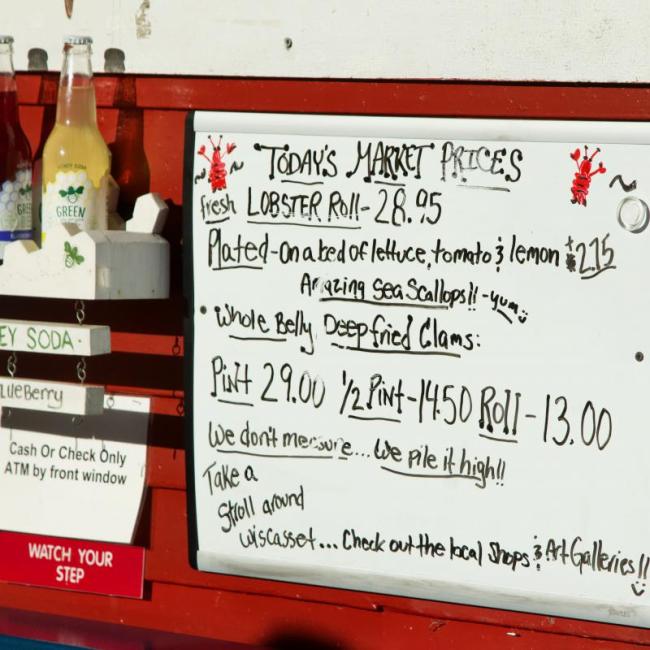 TODAY'S MARKET PRICES
fresh LOBSTER Roll- 28.95
Plated-on a bed of lettuce, tomato & lemon + $2.75
Amazing Sea Scallops!! -yum
Whole Belly Deep fried Clams:
Pint 29.00 1/2 Pint-14.50 Roll-13.00
We don't measure... We pile it high!!
Take a
Stroll around
Wiscasset... Check out the local Shops & Art Galleries!!
GREEN
EY SODA
lueBerry
Cash Or Check Only
ATM by front window
WATCH YOUR
STEP